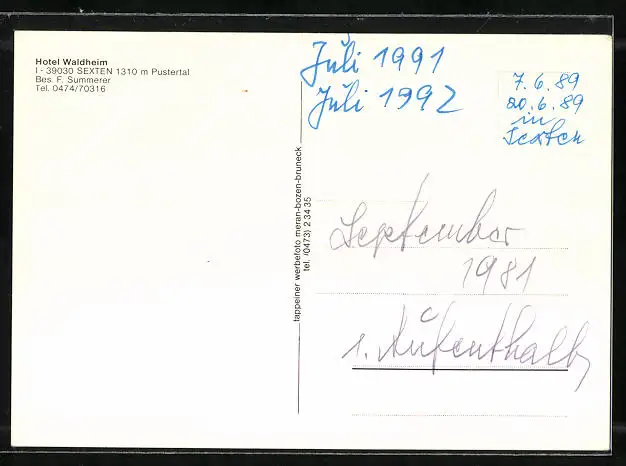 Hotel Waldheim
I - 39030 SEXTEN 1310 m Pustertal
Bes. F. Summerer
Tel. 0474/70316
tappeiner werbefoto meran-bozen-bruneck
tel. (0473) 2 34 35
Juli 1991
Juli 1992
7.6.89
20.6.89
in
Sexten
September
1981
1. Aufenthalt